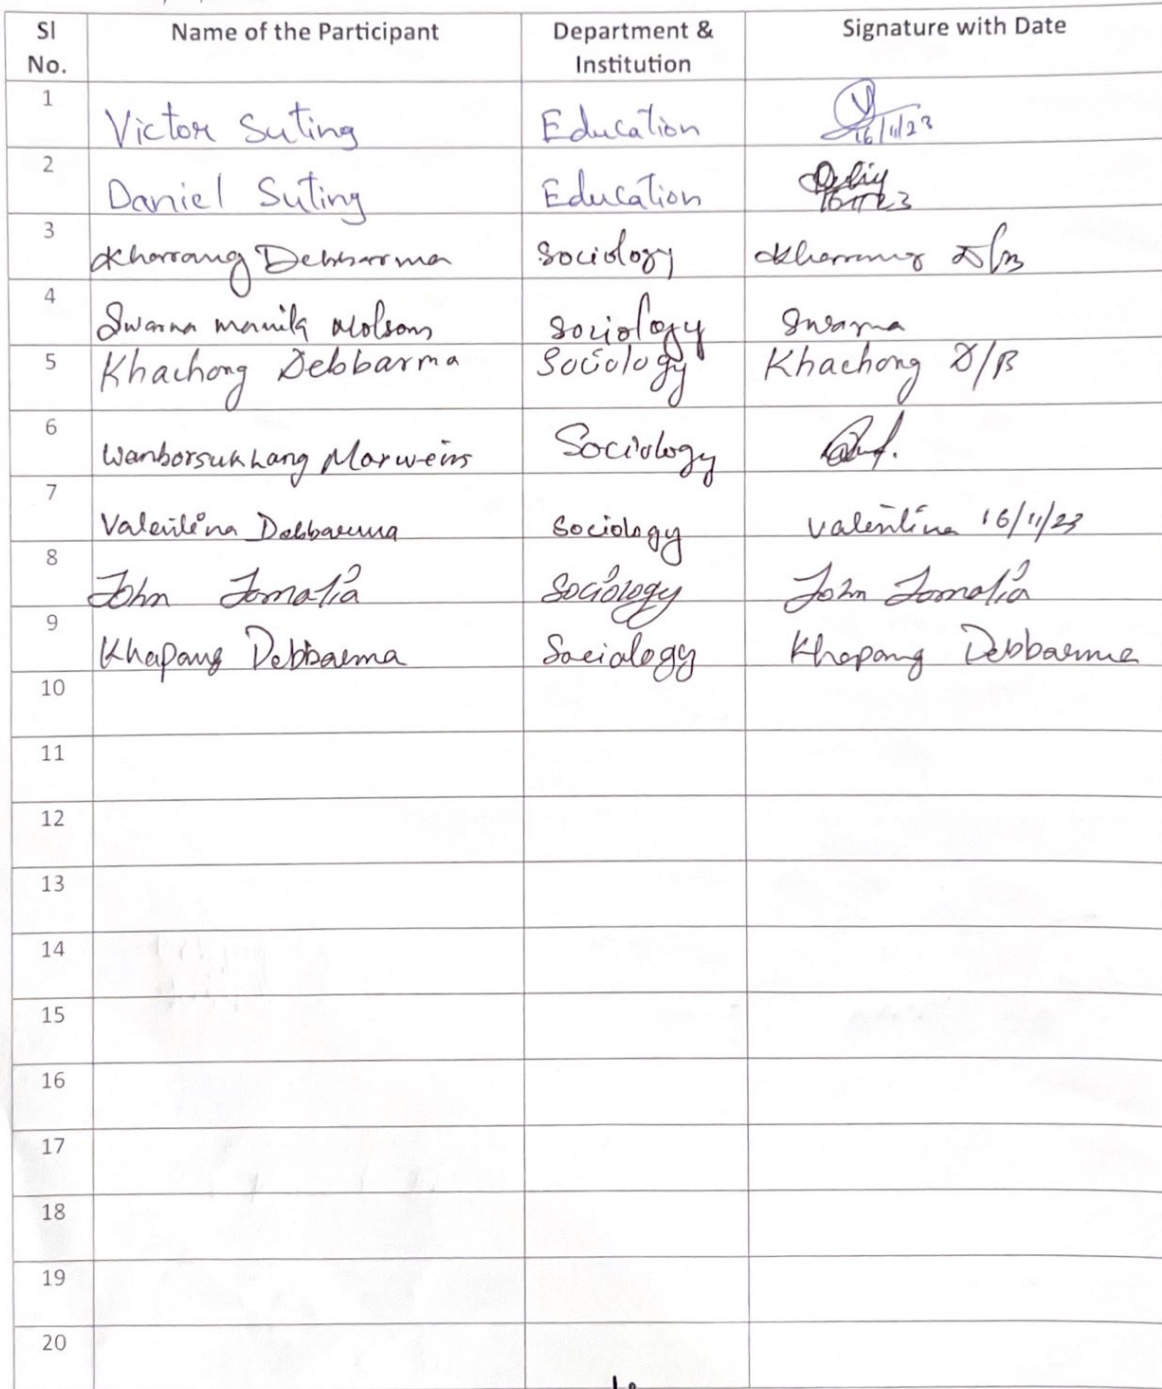 Sl No. Name of the Participant Department & Institution Signature with Date
1 Victor Suting Education 16/11/23
2 Daniel Suting Education 16/11/23
3 Kharrang Debbarma Sociology Kharrang D/B
4 Swarna manika Molsom Sociology Swarna
5 Khachong Debbarma Sociology Khachong D/B
6 Wanborsukhang Marweins Sociology
7 Valentina Debbarma Sociology Valentina 16/11/23
8 John Jomatia Sociology John Jomatia
9 Khapang Debbarma Sociology Khapang Debbarma
10
11
12
13
14
15
16
17
18
19
20